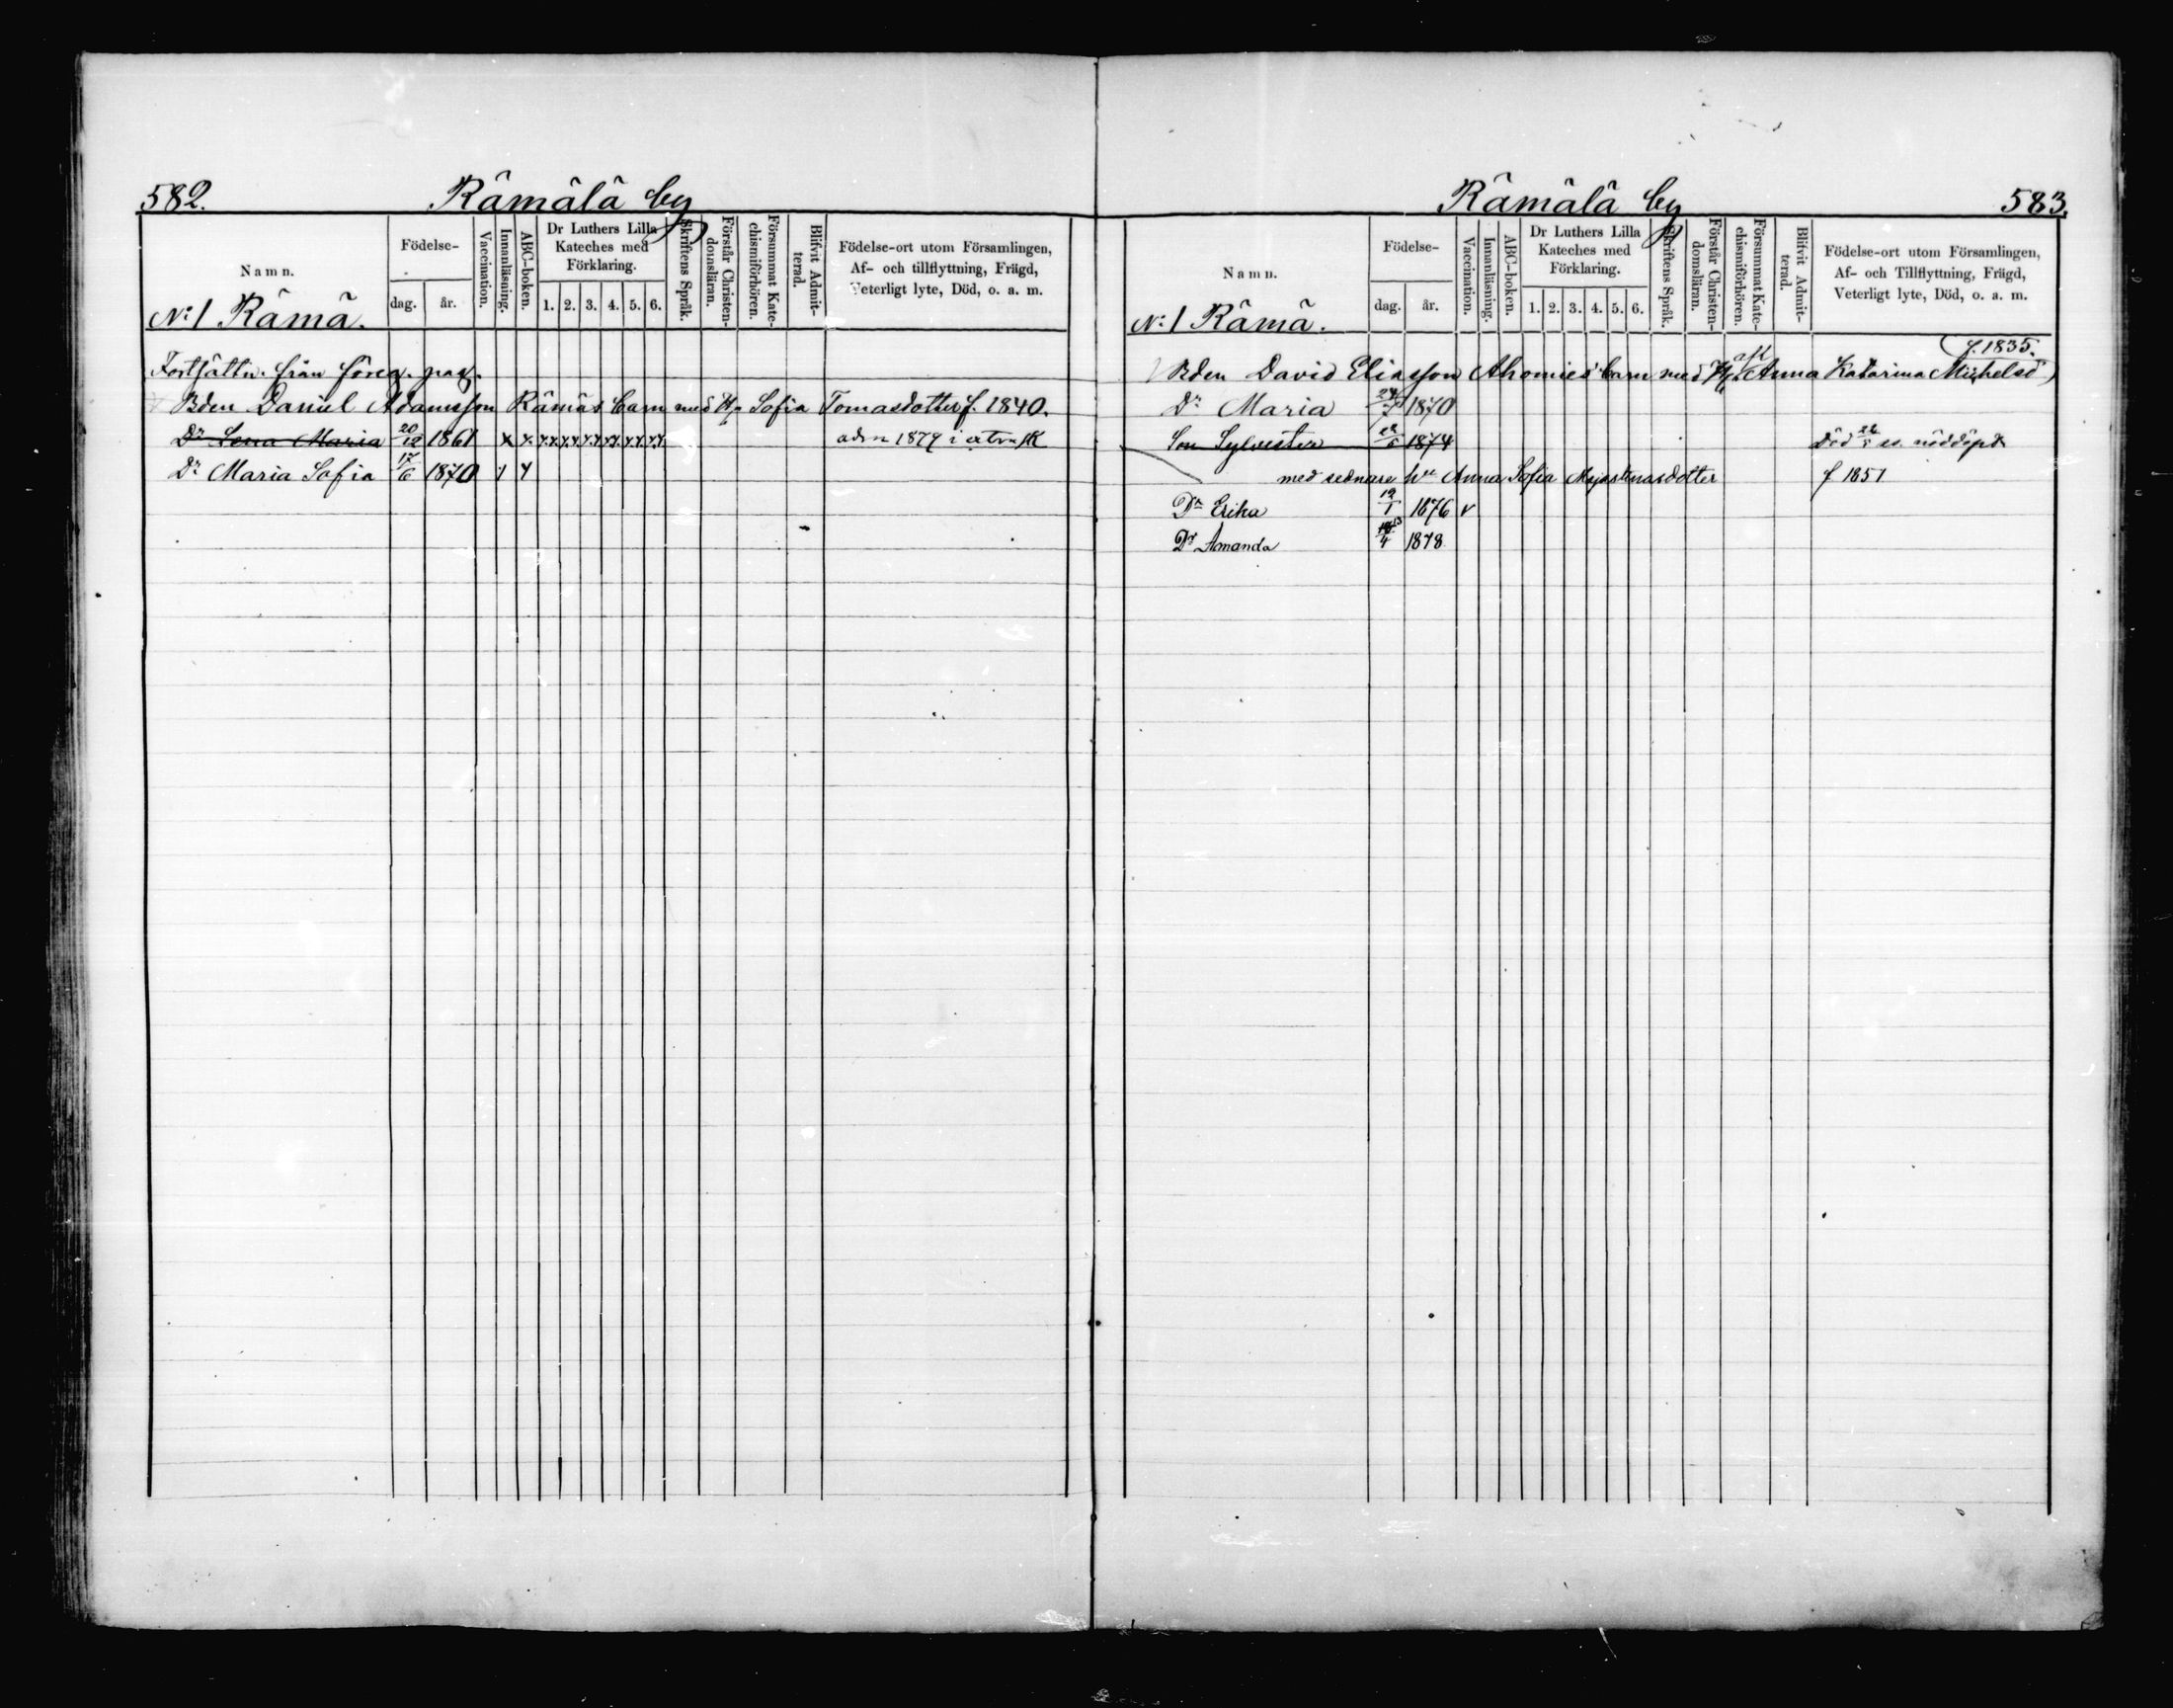 582. Rämälä by
Namn.
Födelse-
dag. år.
Vaccination.
Innanläsning.
ABC-boken.
Dr Luthers Lilla Kateches med Förklaring.
1. 2. 3. 4. 5. 6.
Skriftens Språk.
Förstår Christen-domsläran.
Försummat Kate-chismiförhören.
Blifvit Admit-terad.
Födelse-ort utom Församlingen,
Af- och tillflyttning, Frägd,
Veterligt lyte, Död, o. a. m.
N:1 Rämä.
Fortsättn. från föreg. pag.
Bden Daniel Adamsson Rämäs barn med H:a Sofia Tomasdotter f. 1840.
Dr Lena Maria 20/12 1861 adm 1879 i extra sk
Dr Maria Sofia 17/6 1870
Rämälä by 583.
Namn.
Födelse-
dag. år.
Vaccination.
Innanläsning.
ABC-boken.
Dr Luthers Lilla Kateches med Förklaring.
1. 2. 3. 4. 5. 6.
Skriftens Språk.
Förstår Christen-domsläran.
Försummat Kate-chismiförhören.
Blifvit Admit-terad.
Födelse-ort utom Församlingen,
Af- och Tillflyttning, Frägd,
Veterligt lyte, Död, o. a. m.
N:1 Rämä.
f. 1835.
Bden David Eliasson Ahomies barn med afl H:a Anna Katarina Michelsd
Dr Maria 1870
Son Sylvester 22/5 1874 Död 22/5 s. nöddöpt
med sednare h:u Anna Sofia f 1851
Dr Erika 12/1 1876
Dr Amanda 1878